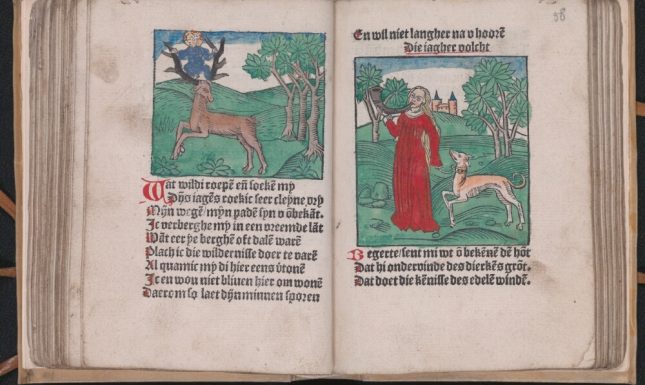 Wat wildi roepē en̄ soekē my
Dijs iagēs roekic seer cleyne vry
Mijn wegē/mijn padē sijn v ōbekāt.
Ic verberghe my in een vreemde lāt
Wāt eer ye berghē oft dalē warē
Plach ic die wildernisse doer te varē
Al quamic my di hier eens v̄tonē
Ic en wou niet bliuen hier om wonē
Daerom so laet dijn minnen sporen
En wil niet langher na v hoorē
Die iagher volcht
38
Begerte/sent mi wt ō bekēnē dē hōt
Dat hi onderwinde des dierkēs grōt.
Dat doet die kēnisse des edelē windē.